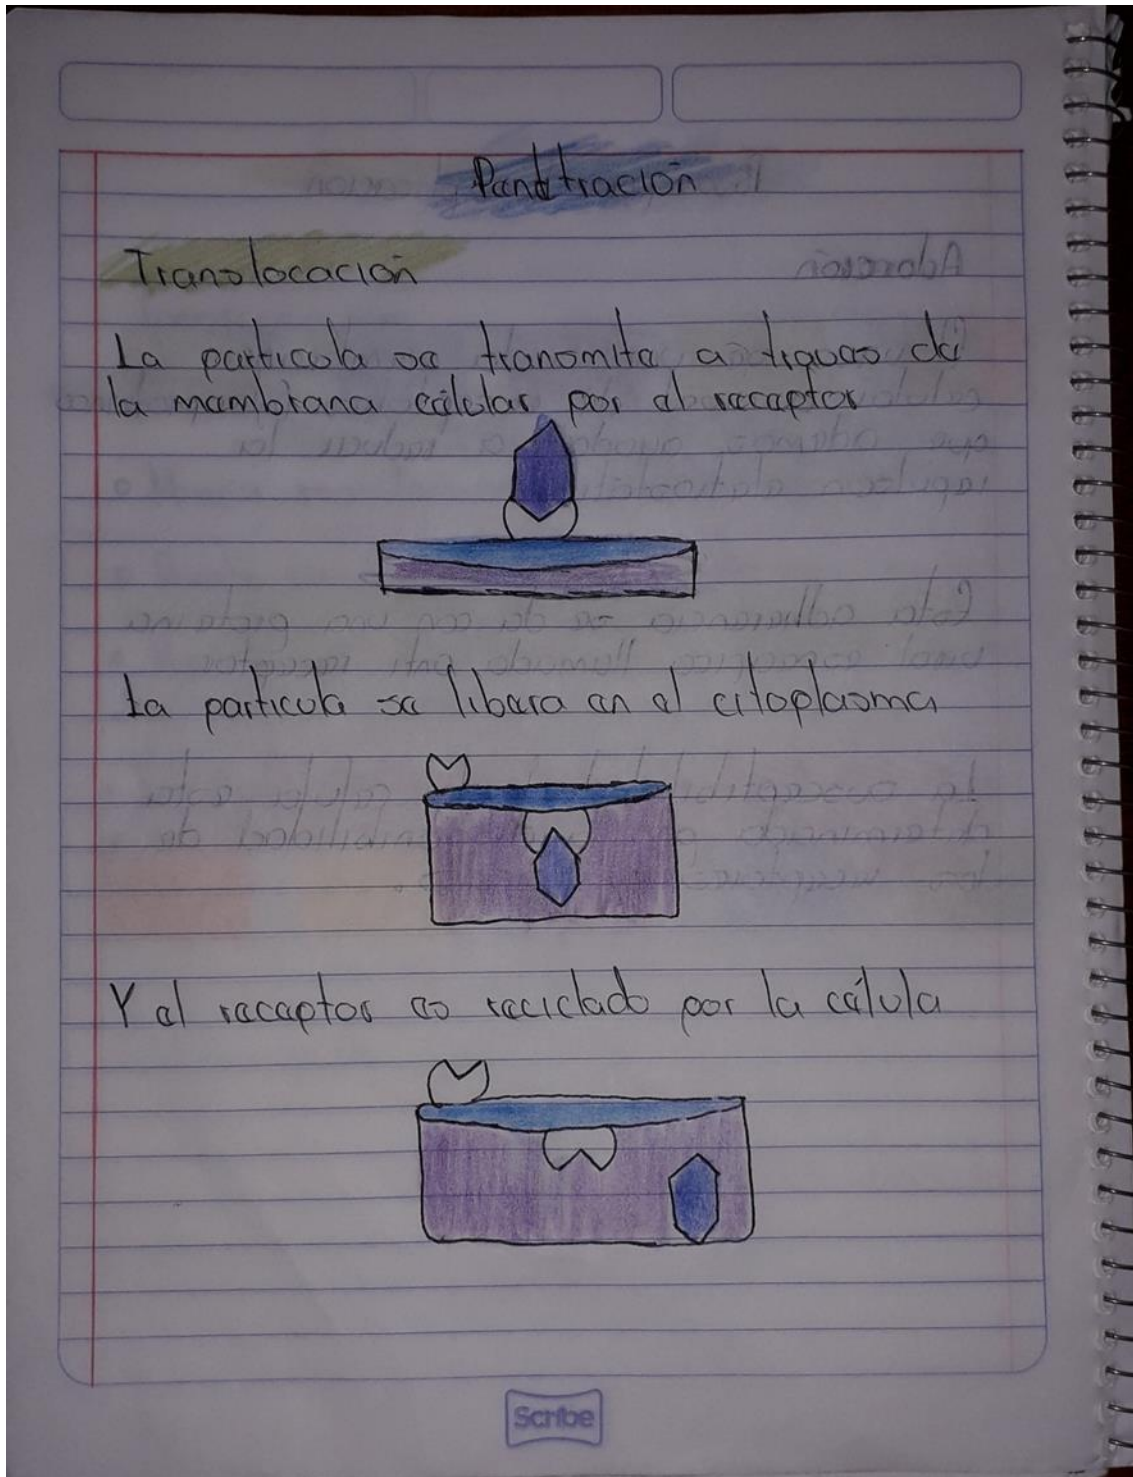 Penetración
Translocación
La particula se transmite a traves de
la membrana célular por el receptor
La particula se libera en el citoplasma
Y el receptor es reciclado por la célula
Scribe